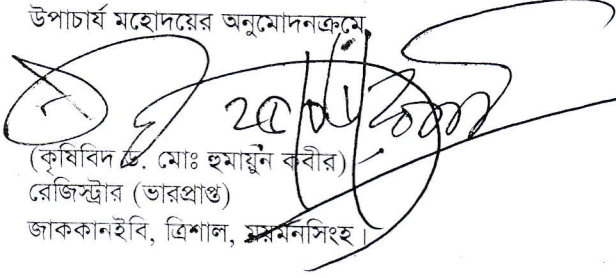 উপাচার্য মহোদয়ের অনুমোদনক্রমে
(কৃষিবিদ ড. মোঃ হুমায়ুন কবীর)
রেজিস্ট্রার (ভারপ্রাপ্ত)
জাককানইবি, ত্রিশাল, ময়মনসিংহ।